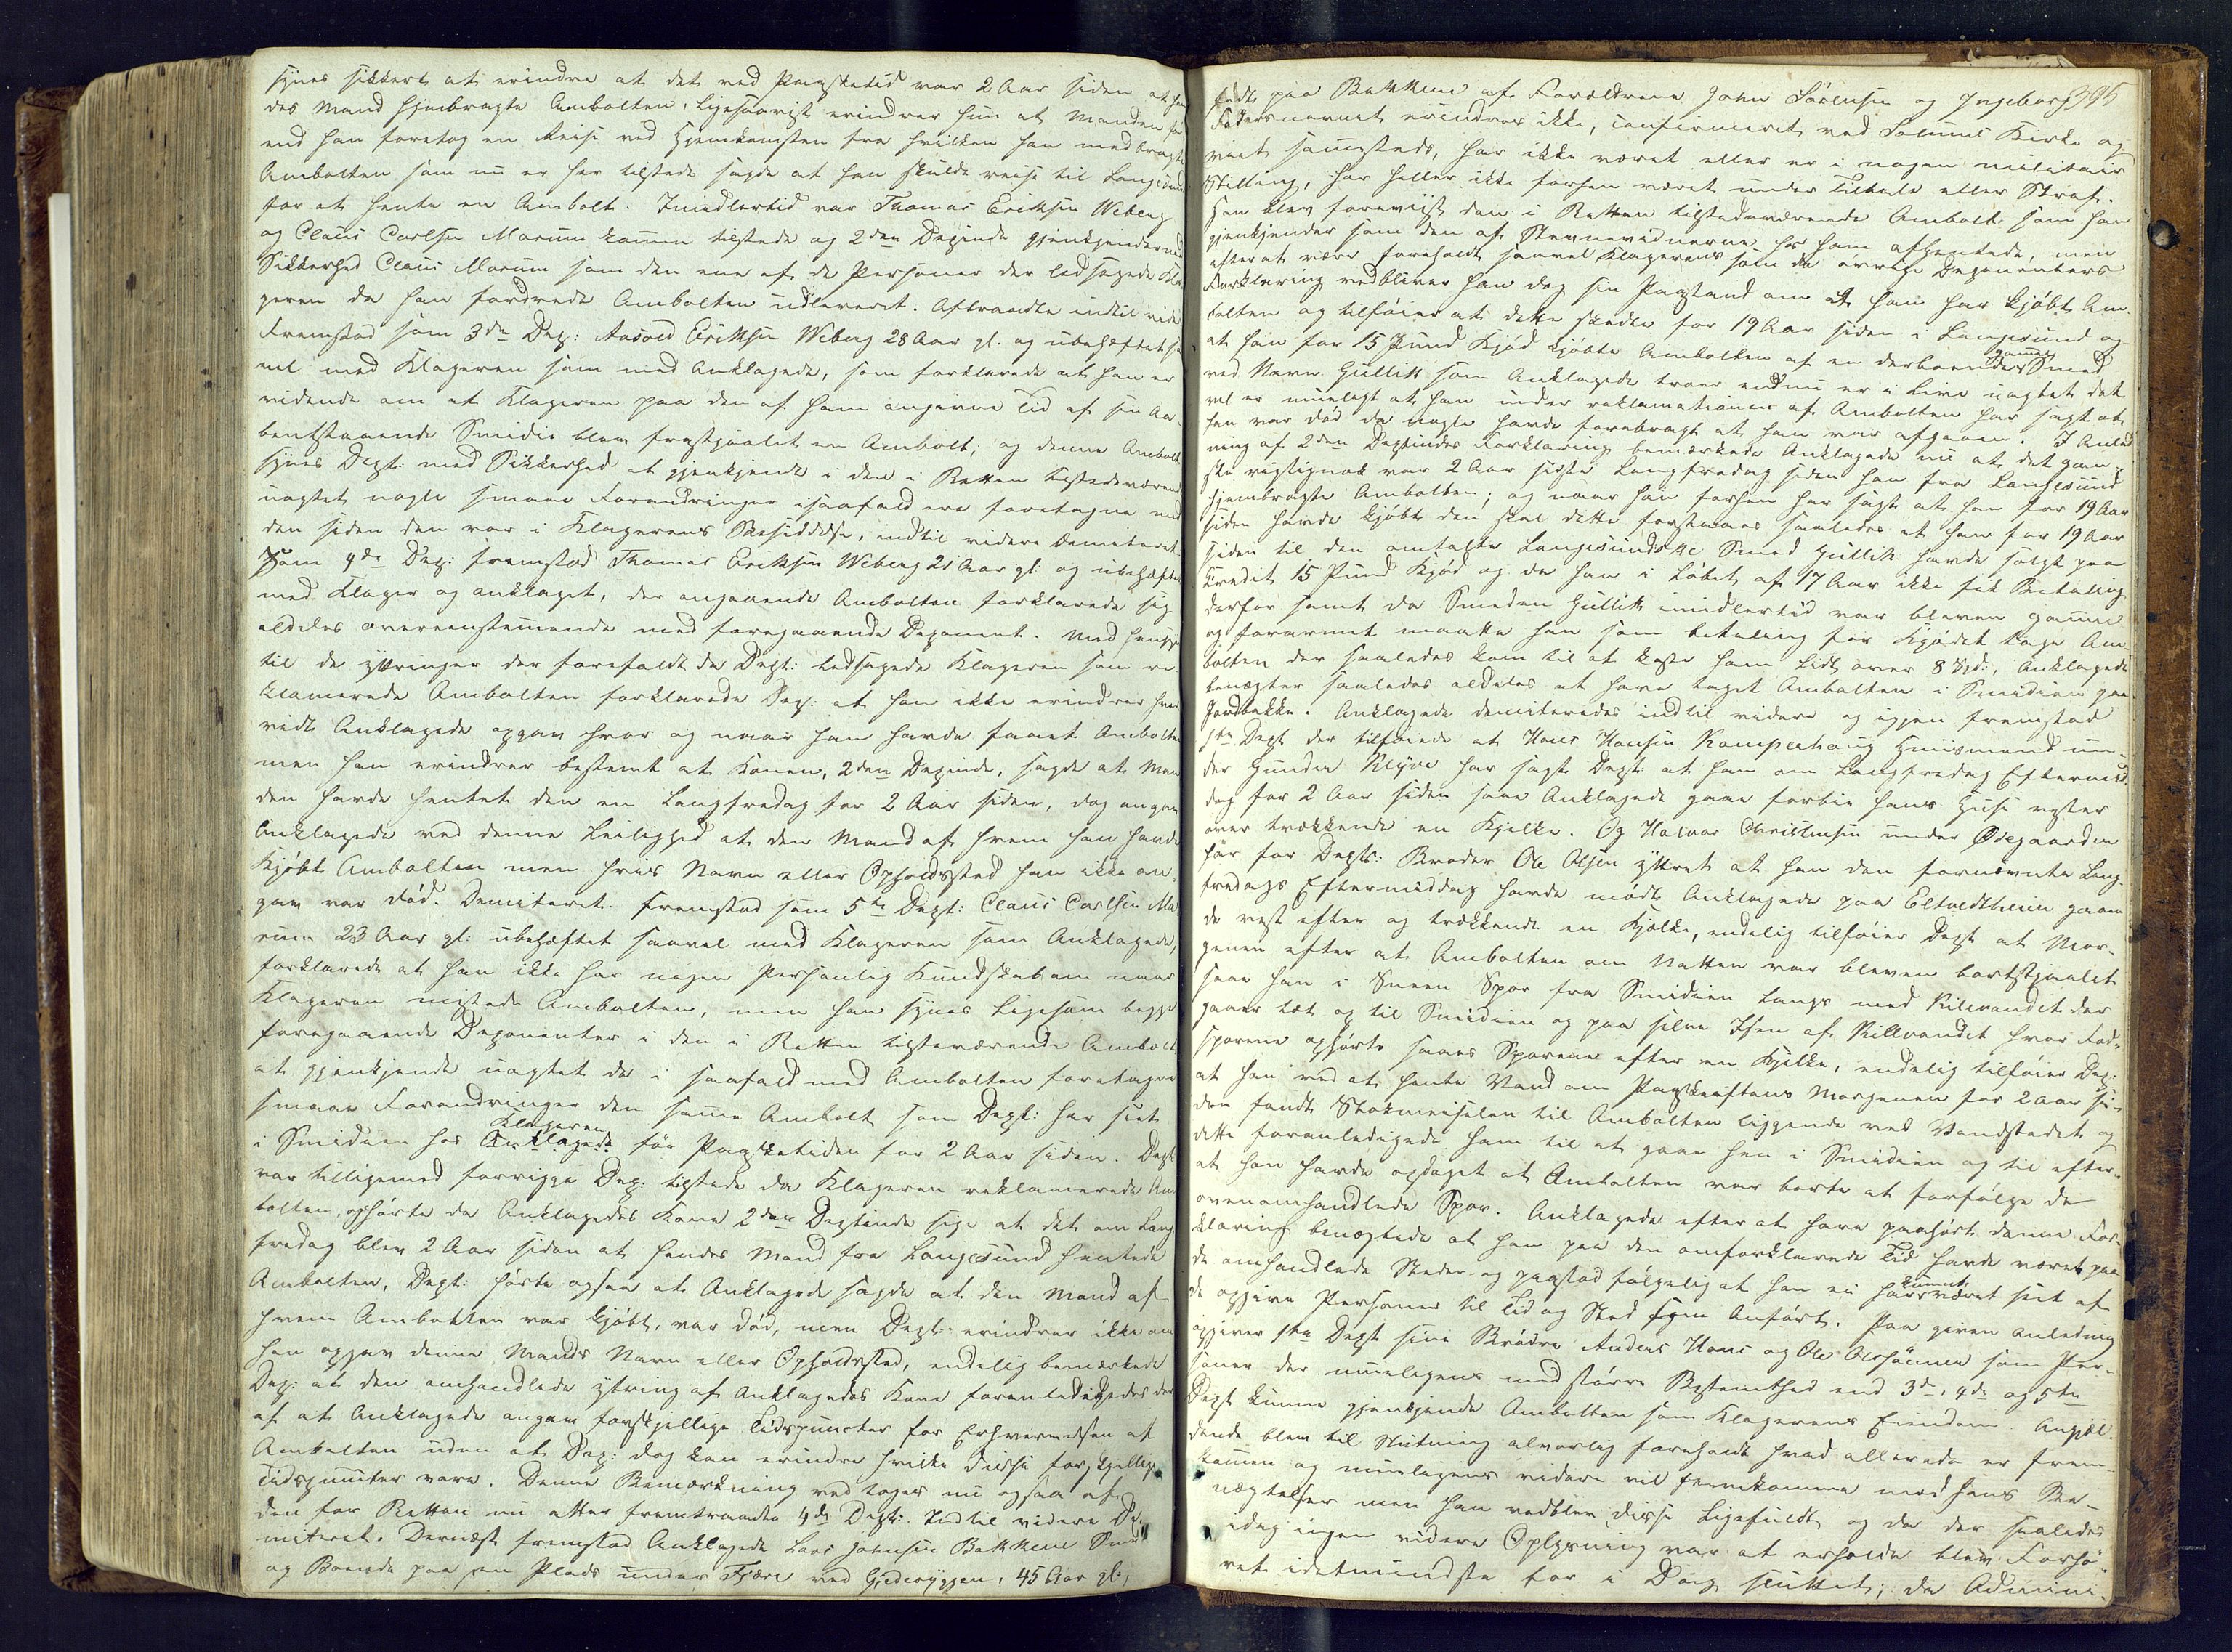 synes sikkert at erindre at det ved Paasketid var 2 Aar siden at hen
des Mand hjembragte Ambolten, ligesaavist erindrer hun at Manden før
end han foretog en Reise ved Hjemkomsten fra hvilken han medbragte
Ambolten som nu er her tilstede sagde at han skulde reise til Langesund
for at hente en Ambolt. Imidlertid var Thomas Eriksen Weberg
og Claus Carlsen Marum kommen tilstede og 2den Depinde gjenkjender med
Sikkerhed Claus Marum som den ene af de Personer der ledsagede Kla
geren da han fordrede Ambolten udleveret. Aftraadte indtil vide
Fremstod som 3de Dep: Aasold Eriksen Weberg 28 Aar gl. og ubehæftet saa
vel med Klageren som med Anklagede, som forklarede at han er
vidende om at Klageren paa den af ham angivne Tid af sin aa
bentstaaende Smidie blev frastjaalet en Ambolt, og denne Ambolt
synes Dept: med Sikkerhed at gjenkjende i den i Retten tilstedeværende
uagtet nogle smaae Forandringer isaafald ere foretagne med
den siden den var i Klagerens Besiddelse, indtil videre demitteret.
Som 4de Dep: fremstod Thomas Eriksen Weberg 21 Aar gl. og ubehæftet
med Klager og anklaget, der angaaende Ambolten forklarede sig
aldeles overeenstemmende med foregaaende Deponent. Med Hensyn
til de yttringer der forefaldt da Dept: ledsagede Klageren som re
klamerede Ambolten forklarede Dep: at han ikke erindrer hvor
vidt Anklagede opgav hvor og naar han havde faaet Ambolten
men han erindrer bestemt at Konen, 2den Depinde, sagde at Man
den havde hentet den en Langfredag for 2 Aar siden, dog angav
Anklagede ved denne Leilighed at den Mand af hvem han havde
Kjøbt Ambolten men hvis Navn eller Opholdssted han ikke an
gav var død. Demitteret. Fremstod som 5te Dept: Claus Carlsen Ma
rum 23 Aar gl: ubehæftet saavel med Klageren som Anklagede,
forklarede at han ikke har nogen Personlig Kundskab om naar
Klageren mistede Ambolten, men han synes ligesom begge
foregaaende Deponenter i den i Retten tilstedeværende Ambolt
at gjenkjende uagtet de i saafald med Ambolten foretagne
smaae Forandringer den samme Ambolt som Dept: har seet
Klageren
i Smidien hos Anklagede før Paasketiden for 2 Aar siden. Dept
var tilligemed forrige Dep: tilstede da Klageren reklamerede Am
bolten, ophørte da Anklagedes Kone 2den Deptinde sige at det om Lang
fredag blev 2 Aar siden at hendes Mand fra Langesund hentede
Ambolten, Dept: hørte ogsaa at Anklagede sagde at den Mand af
hvem Ambolten var kjøbt, var død, men Dept: erindrer ikke om
han opgav denne Mands Navn eller Opholdssted, endelig bemærkede
Dep: at den omhandlede yttring af Anklagedes Kone foranledigedes der
af at Anklagede angav forskjellige Tidspuncter for Erhvervelsen af
Ambolten uden at Dep: dog kan erindre hvilke disse forskjellige
Tidspunkter vare. Denne Bemærkning vedtoges nu ogsaa af
den for Retten nu atter fremtraadte 4de Dept:. Indtil videre De
mitteret. Dernæst fremstod Anklagede Lars Johnsen Bakkene Smed
og Boende paa en Plads under Fjære ved Gjederyggen, 45 Aar gl.,
395
født paa Bakkene af Forældrene John Sørensen og Ingeborg
Fadersnavnet erindres ikke, confirmeret ved Solums Kirke og
viet sammesteds, har ikke været eller er i nogen militair
Stilling, har heller ikke forhen været under Tiltale eller Straf.
Han blev foreviist den i Retten tilstedeværende Ambolt som han
gjenkjender som den af Stevnevidnerne hos ham afhentede, men
efterat være foreholdt saavel Klagerens som de øvrige Deponenters
Forklaring vedbliver han dog sin Paastand om at han har kjøbt Am
bolten og tilføier at dette skedte for 19 Aar siden i Langesund og
at han for 15 Pund Kjød kjøbte Ambolten af en derboende
gammel
Smed
ved Navn Gullik som Anklagede troer endnu er i Live uagtet det
vel er mueligt at han under reklamationen af Ambolten har sagt at
han var død da nogle havde forebragt at han var afgaaen. I Anled
ning af 2den Deptindes Forklaring bemærkede Anklagede nu at det gan
ske rigtignok var 2 Aar sidste Langfredag siden han fra Langesund
hjembragte Ambolten; og naar han forhen har sagt at han for 19 Aar
siden havde kjøbt den skal dette forstaaes saaledes at han for 19 Aar
siden til den omtalte Langesundske Smed Gullik havde solgt paa
Credit 15 Pund Kjød og da han i Løbet af 17 Aar ikke fik Betaling
derfor samt da Smeden Gullik imidlertid var bleven gammel
og forarmet maatte han som betaling for Kjødet tage Am
bolten der saaledes kom til at koste ham lidt over 8 Spd:. Anklagede
benægter saaledes aldeles at have taget Ambolten i Smidien paa
Jordbakke. Anklagede demitteredes indtil videre og igjen fremstod
1te Dept der tilføiede at Hans Hansen Kamperhaug Huusmand un
der Gunder Klyve har sagt Dept: at han om Langfredag Eftermid
dag for 2 Aar siden saae Anklagede gaae forbi hans Huse vester
over trækkende en Kjelke. Og Halvor Christensen under Ødegaarden
har for Depts: Broder Ole Olsen yttret at han den fornævnte Lang
fredags Eftermiddag havde mødt Anklagede paa Eltvedtheien gaaen
de vest efter og trækkende en Kjølke, endelig tilføier Dept at Mor
genen efter at Ambolten om Natten var bleven bortstjaalet
saae han i Sneen Spor fra Smidien langs med Kilevandet der
gaaer tæt op til Smidien og paa selve Isen af Killvandet hvor Fod
sporene ophørte saaes Sporene efter en Kjelke, endelig tilføier Dep:
at han ved at hente Vand om Paaskeaftens Morgenen for 2 aar si
den fandt Stokmeiselen til Ambolten liggende ved Vandstedet og
dette foranledigede ham til at gaae hen i Smidien og til efter
at han havde opdaget at Ambolten var borte at forfølge de
ovenomhandlede Spor. Anklagede efter at have paahørt denne For
klaring benægtede at han paa den omforklarede Tid havde været paa
de omhandlede Steder og paastod følgelig at han ei har
kunnet
været seet af
de opgivne Personer til Tid og Sted som Anført. Paa given Anledning
opgiver 1te Dept sine Brødre Anders Hans og Ole Olssønner som Per
soner der mueligens med større Bestemthed end 3de, 4de og 5te
Dept kunne gjenkjende Ambolten som Klagerens Eiendom. Angjæl
dende blev til Slutning alvorlig foreholdt hvad allerede er frem
kommen og mueligens videre vil fremkomme mod hans Be
nægtelser men han vedblev disse Ligefuldt og da der saaledes
idag ingen videre Oplysning var at erholde blev Forhø
ret idetmindste for i Dag sluttet; da Admini